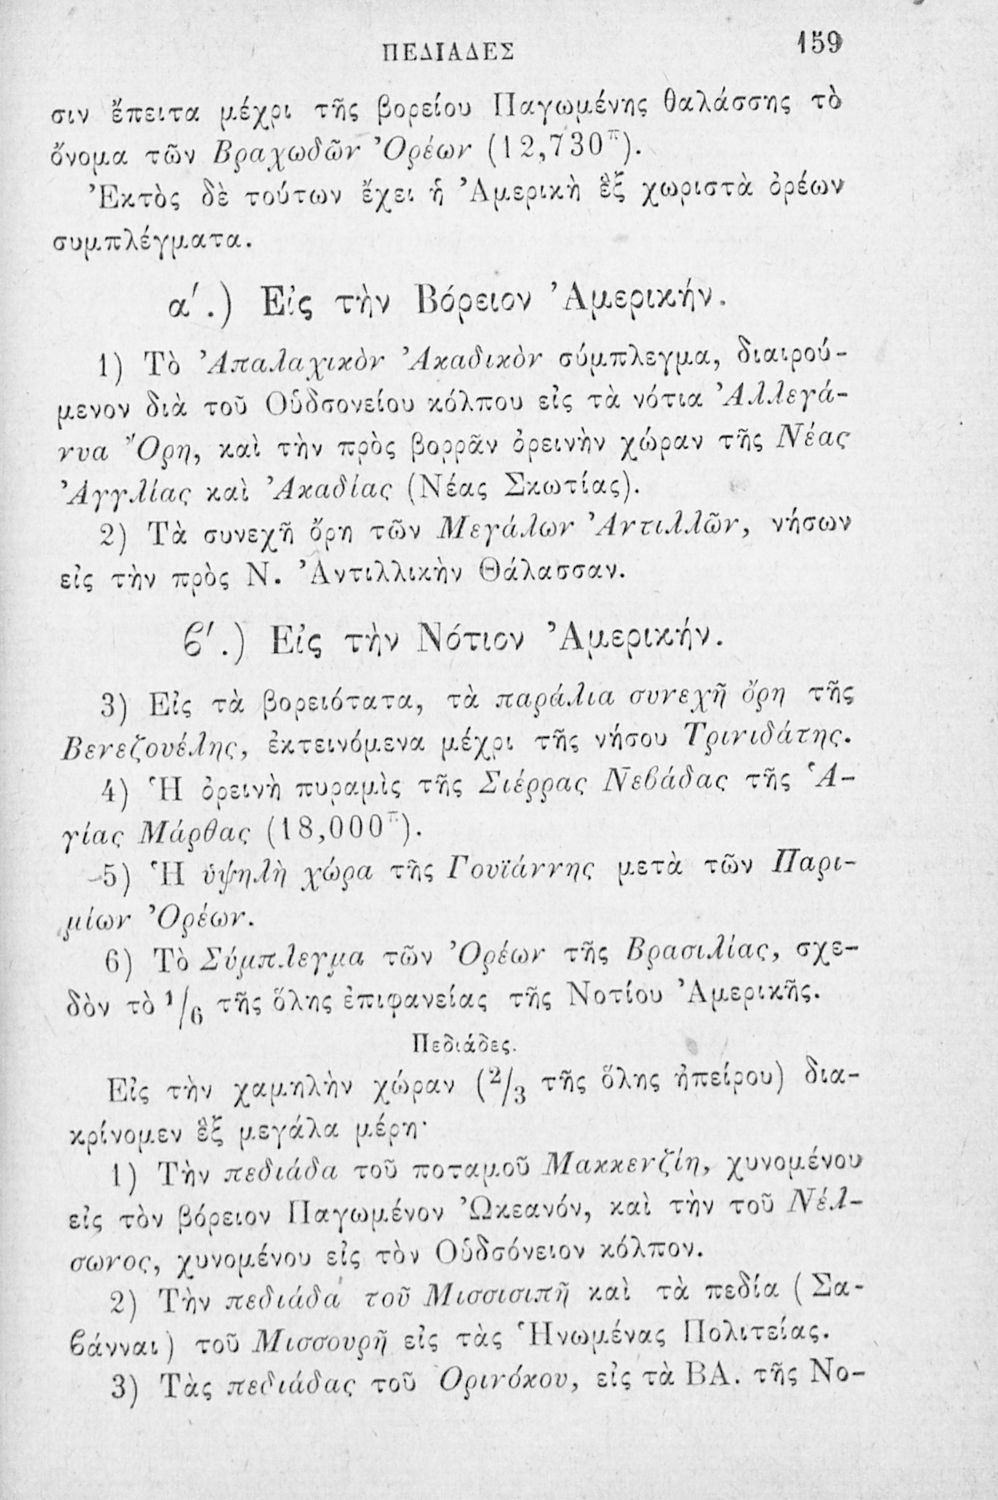 ΠΕΔΙΑΔΕΣ 159
σιν ἔπειτα μέχρι τῆς βορείου Παγωμένης θαλάσσης τὸ
ὄνομα τῶν Βραχωδῶν Ὀρέων (12,730π).
Ἐκτὸς δὲ τούτων ἔχει ἡ Ἀμερικὴ ἓξ χωριστὰ ὀρέων
συμπλέγματα.
α΄.) Εἰς τὴν Βόρειον Ἀμερικήν.
1) Τὸ Ἀπαλαχικὸν Ἀκαδικὸν σύμπλεγμα, διαιρού-
μενον διὰ τοῦ Οὑδσονείου κόλπου εἰς τὰ νότια Ἀλλεγά-
νυα Ὄρη, καὶ τὴν πρὸς βορρᾶν ὀρεινὴν χώραν τῆς Νέας
Ἀγγλίας καὶ Ἀκαδίας (Νέας Σκωτίας).
2) Τὰ συνεχῆ ὄρη τῶν Μεγάλων Ἀντιλλῶν, νήσων
εἰς τὴν πρὸς Ν. Ἀντιλλικὴν Θάλασσαν.
ϐ΄.) Εἰς τὴν Νότιον Ἀμερικήν.
3) Εἰς τὰ βορειότατα, τὰ παράλια συνεχῆ ὄρη τῆς
Βενεζουέλης, ἐκτεινόμενα μέχρι τῆς νήσου Τρινιδάτης.
4) Ἡ ὀρεινὴ πυραμὶς τῆς Σιέρρας Νεϐάδας τῆς Ἁ-
γίας Μάρθας (18,000π).
5) Ἡ ὑψηλὴ χώρα τῆς Γουϊάννης μετὰ τῶν Παρι-
μίων Ὀρέων.
6) Τὸ Σύμπλεγμα τῶν Ὀρέων τῆς Βρασιλίας, σχε-
δὸν τὸ 1/6 τῆς ὅλης ἐπιφανείας τῆς Νοτίου Ἀμερικῆς.
Πεδιάδες.
Εἰς τὴν χαμηλὴν χώραν (2/3 τῆς ὅλης ἠπείρου) δια-
κρίνομεν ἓξ μεγάλα μέρη·
1) Τὴν πεδιάδα τοῦ ποταμοῦ Μακκενζίη, χυνομένου
εἰς τὸν βόρειον Παγωμένον Ὠκεανόν, καὶ τὴν τοῦ Νέλ-
σωνος, χυνομένου εἰς τὸν Οὑδσόνειον κόλπον.
2) Τὴν πεδιάδα τοῦ Μισσισιπῆ καὶ τὰ πεδία (Σα-
ϐάνναι) τοῦ Μισσουρῆ εἰς τὰς Ἡνωμένας Πολιτείας.
3) Τὰς πεδιάδας τοῦ Ὀρινόκου, εἰς τὰ ΒΑ. τῆς Νο-